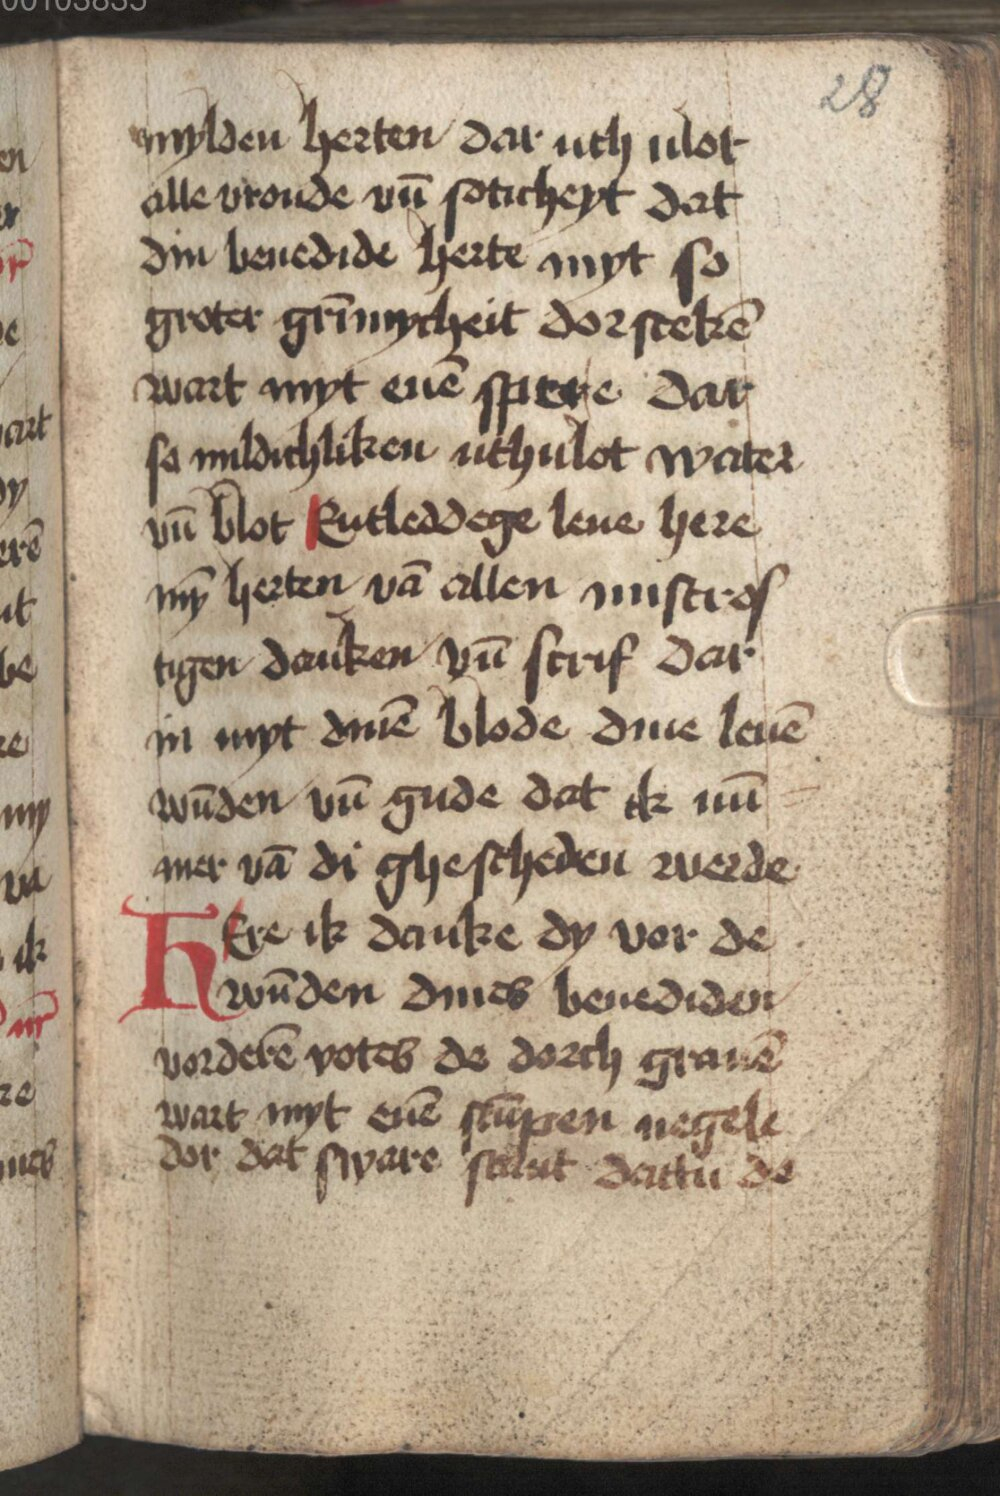 00103835
28
mylden herten dar uth ulot
alle vroude vn̄ soticheyt dat
din benedide herte myt so
groter grī̄mycheit dorstekē
wart myt enē spere dar
so mildichliken uthulot water
vn̄ blot Entleddege leue here
mȳ herten vā allen mistros
tigen danken vn̄ scrif dar
in myt dinē blode dine leuē
wūden vn̄ gude dat ik nū
mer vā di ghescheden werde
HEre ik danke dy vor de
wūden dines benediden
vorderē votes de dorch grauē
wart myt enē stūpen negele
dor dat sware dattu de